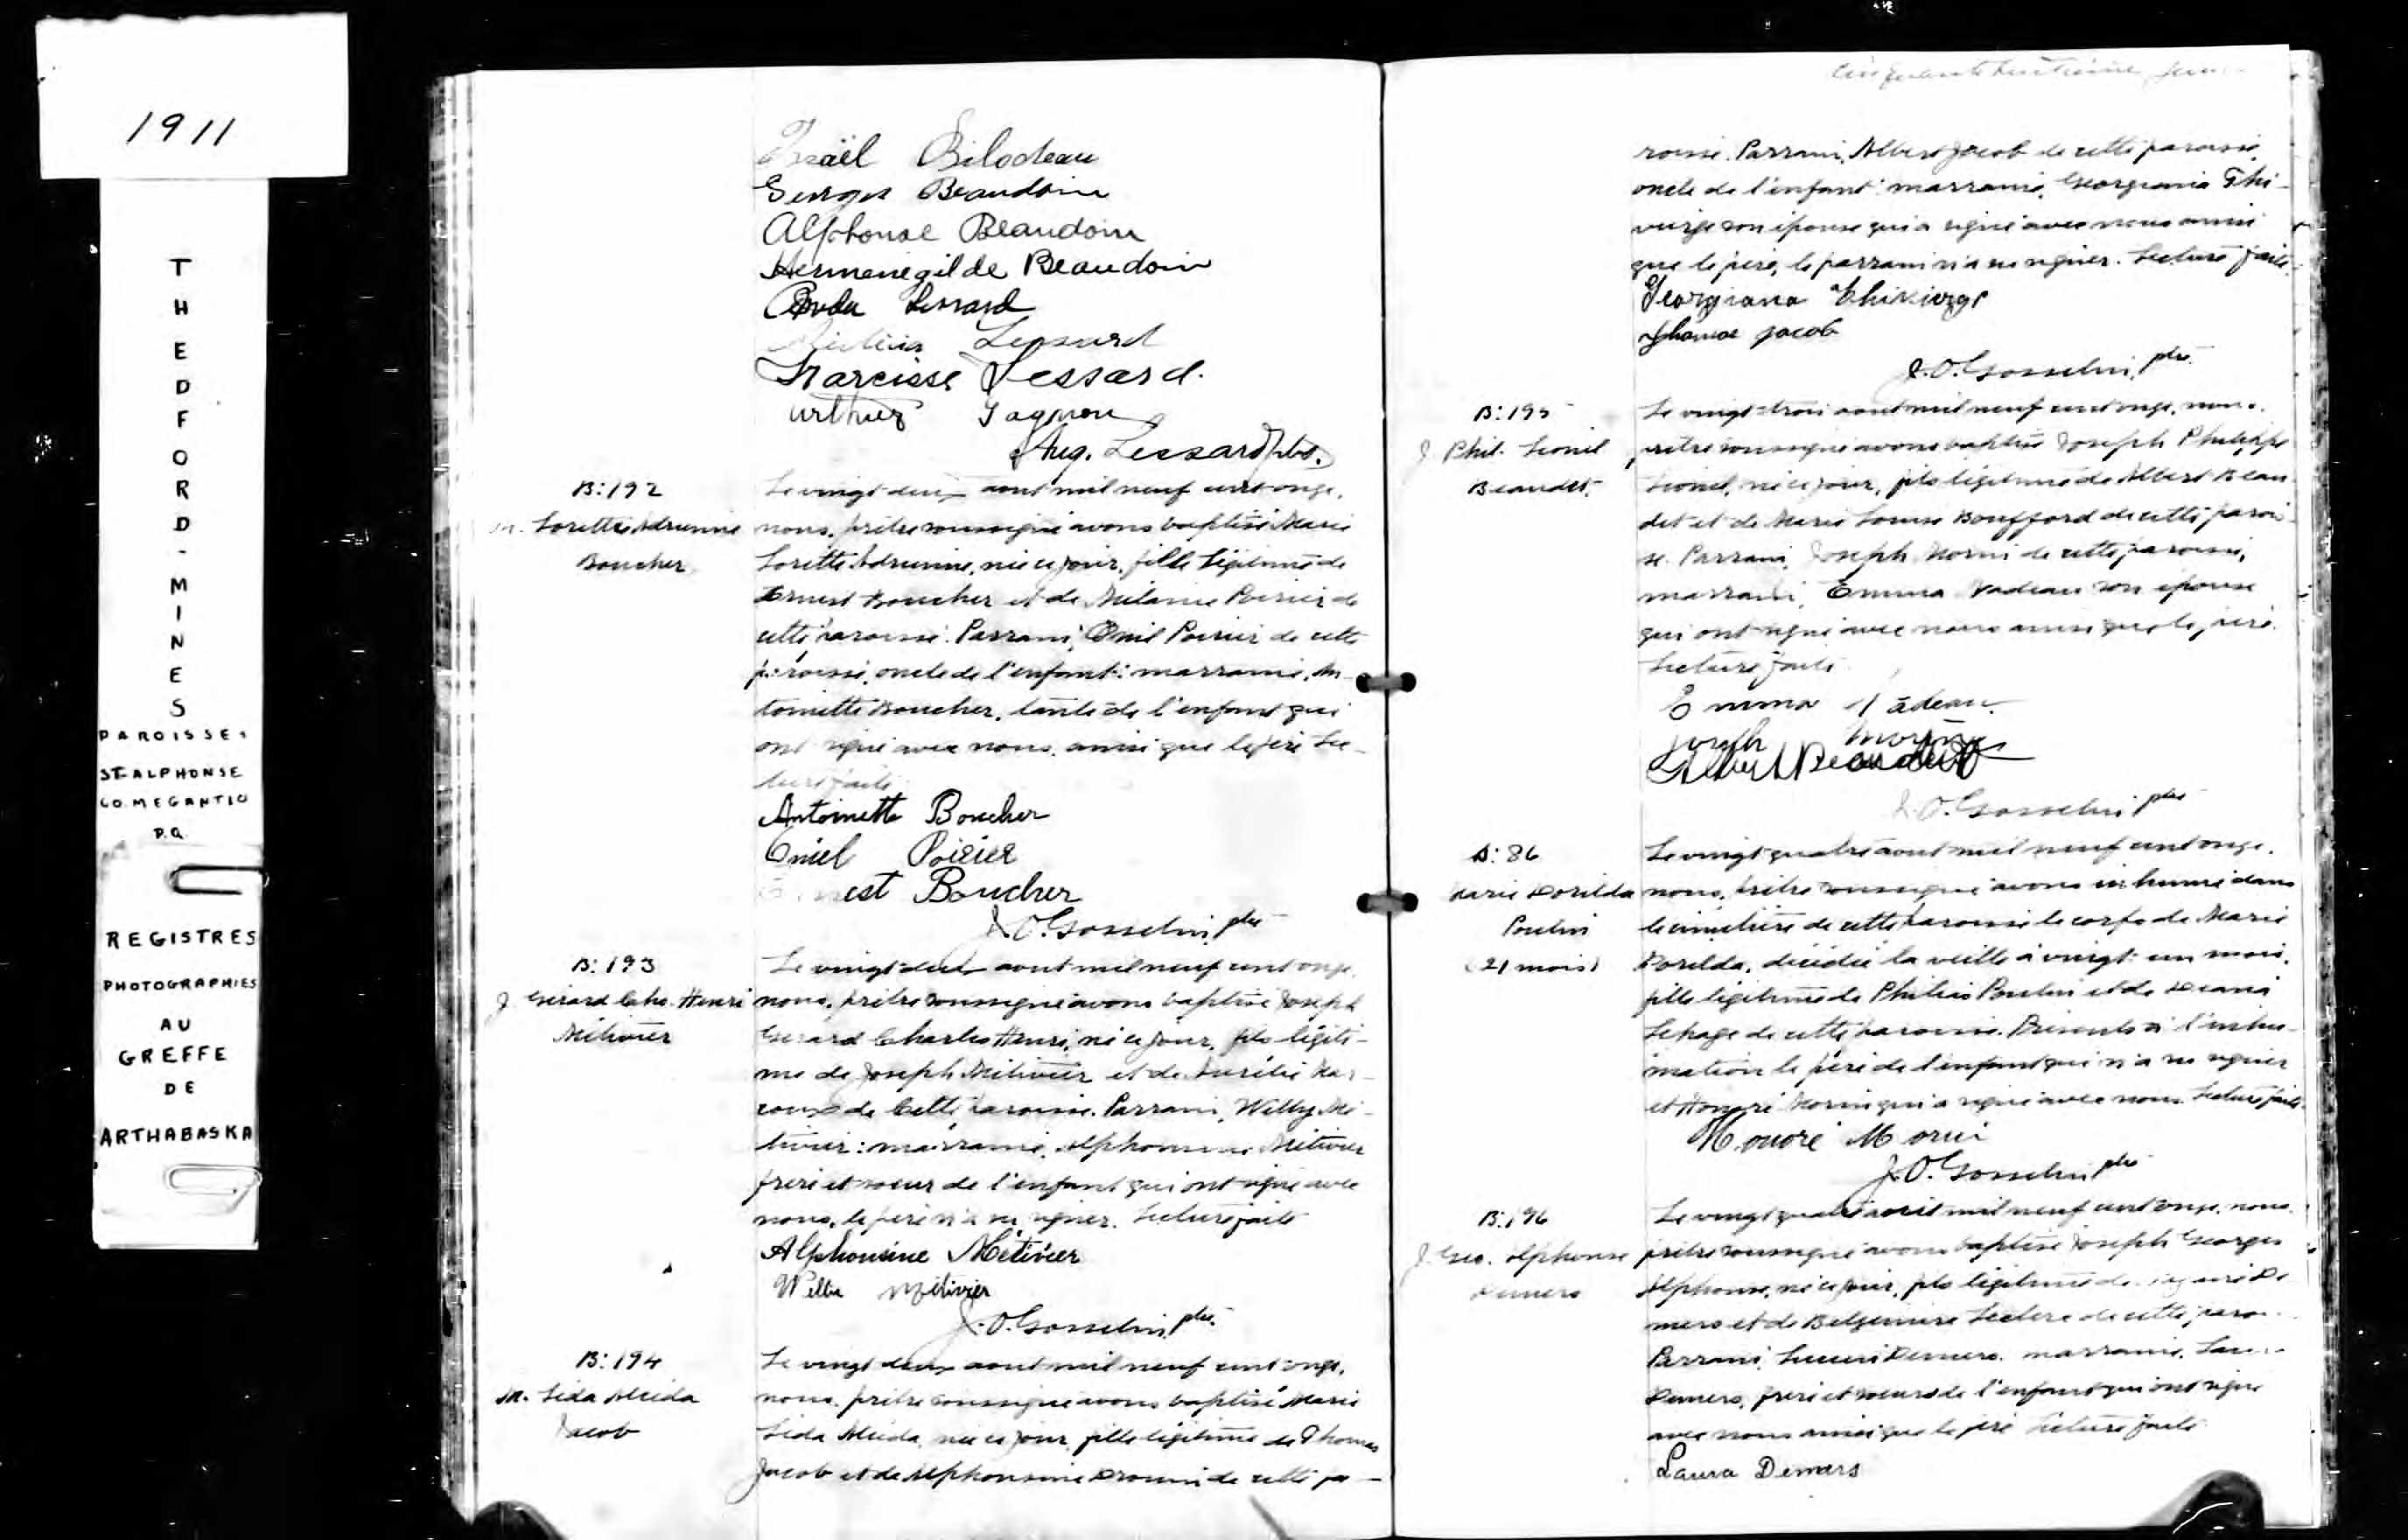 1911
THEDFORD-MINES
PAROISSE:
ST-ALPHONSE
CO. MEGANTIC
P.Q.
REGISTRES
PHOTOGRAPHIES
AU
GREFFE
DE
ARTHABASKA
Israël Bilodeau
Georges Beaudoin
Alphonse Beaudoin
Hermenegilde Beaudoin
Lessard
Lessard
Narcisse Lessard.
Arthur Gagnon
Aug. Lessard Ptre.
B: 192
M. Lorette Adrienne
Boucher
Le vingt-deux aout mil neuf cent onze,
nous, prêtre soussigné avons baptisé Marie
Lorette Adrienne, née ce jour, fille légitime de
Ernest Boucher et de Mélanie Poirier de
cette paroisse. Parrain, Omil Poirier de cette
paroisse, oncle de l'enfant: marraine, An-
toinette Boucher, tante de l'enfant qui
ont signé avec nous ainsi que le père. Lec-
ture faite
Antoinette Boucher
Omiel Poirier
Ernest Boucher
J.O. Gosselin, ptre
B: 193
J. Gérard Chs. Henri
Métivier
Le vingt-deux aout mil neuf cent onze,
nous, prêtre soussigné avons baptisé Joseph
Gérard Charles Henri, né ce jour, fils légiti-
me de Joseph Métivier et de Aurélie Mar-
coux de cette paroisse. Parrain, Willy Mé-
tivier: marraine, Alphonsine Métivier
frère et soeur de l'enfant qui ont signé avec
nous, le père n'a su signer. Lecture faite
Alphonsine Métivier
Willie Métivier
J.O. Gosselin, ptre.
B: 194
M. Léda Alcida
Jacob
Le vingt deux aout mil neuf cent onze,
nous, prêtre soussigné avons baptisé Marie
Léda Alcida, née ce jour, fille légitime de Thomas
Jacob et de Alphonsine Drouin de cette pa-
cinquante huitième
roisse. Parrain, Albert Jacob de cette paroisse,
oncle de l'enfant: marraine, Georgiana Thi-
vierge son épouse qui a signé avec nous ainsi
que le père, le parrain n'a su signer. Lecture faite.
Georgiana Thivierge
Thomas Jacob
J.O. Gosselin, ptre.
B: 195
J. Phil. Lionel
Beaudet.
Le vingt-trois aout mil neuf cent onze, nous,
prêtre soussigné avons baptisé Joseph Philippe
Lionel, né ce jour, fils légitime de Albert Beau
det et de Marie Louise Bouffard de cette parois-
se. Parrain, Joseph Morin de cette paroisse,
marraine, Emma Nadeau son épouse
qui ont signé avec nous ainsi que le père.
Lecture faite.
Emma Nadeau.
Joseph Morin
Albert Beaudet
J.O. Gosselin ptre
S: 86
Marie Dorilda
Poulin
(21 mois)
Le vingt quatre aout mil neuf cent onze,
nous, prêtre soussigné avons inhumé dans
le cimetière de cette paroisse le corps de Marie
Dorilda, décédée la veille à vingt-un mois,
fille légitime de Poulin et de
Lepage de cette paroisse. Présents à l'inhu-
mation le père de l'enfant qui n'a su signer
et Honoré Morin qui a signé avec nous. Lecture faite.
Honoré Morin
J.O. Gosselin ptre
B: 196
J. Geo. Alphonse
Demers
Le vingt quatre aout mil neuf cent onze, nous
prêtre soussigné avons baptisé Joseph Georges
Alphonse, né ce jour, fils légitime de De
mers et de Leclerc de cette paroi
Parrain, Demers. marraine, Laura
Demers, frère et soeur de l'enfant qui ont signé
avec nous ainsi que le père lecture faite
Laura Demers